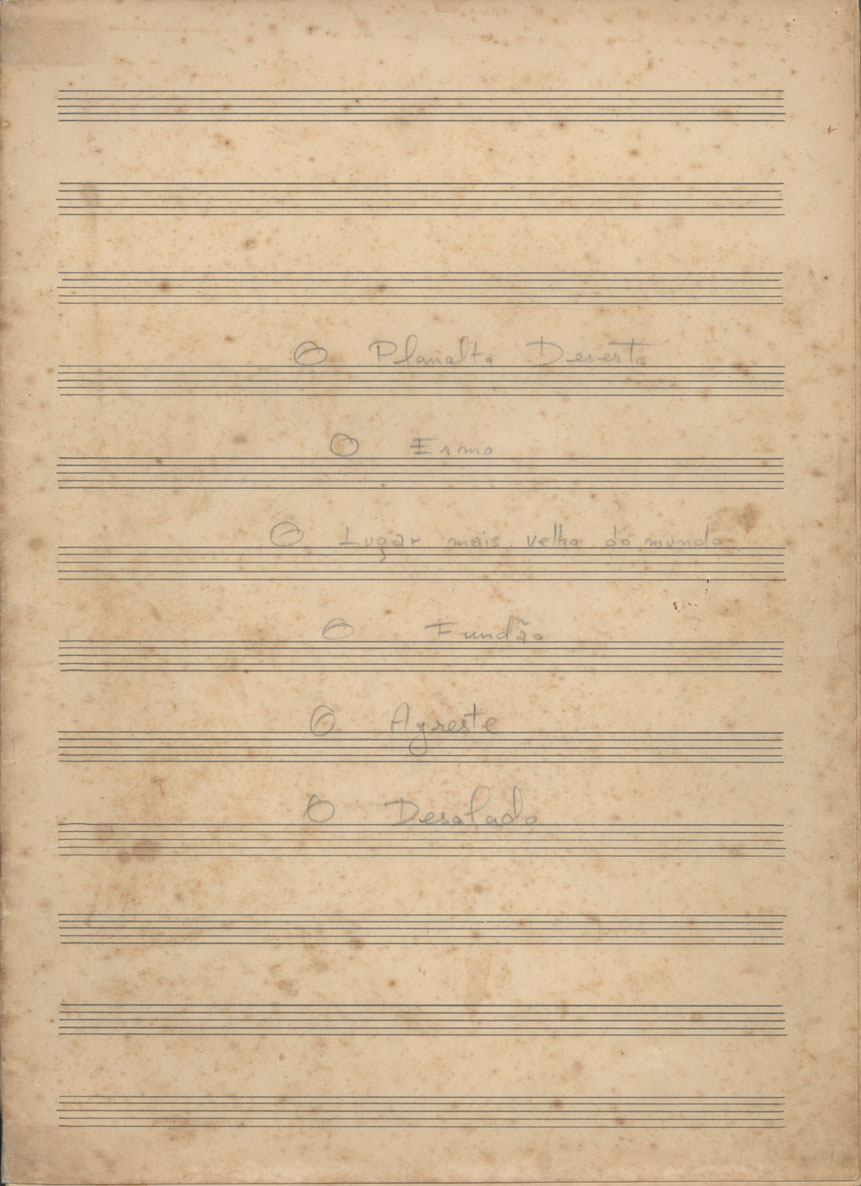 O Planalto Deserto
O Ermo
O Lugar mais velho do mundo
O Fundão
O Agreste
O Desolado